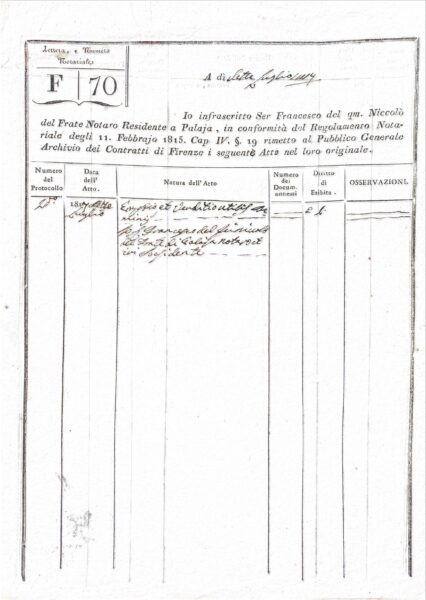 Lettera, e Numero
Notariale
F 70
A dì sette Luglio 1817
Io infrascritto Ser Francesco del qm. Niccolò
del Frate Notaro Residente a Palaja, in conformità dol Regolamento Nota-
riale degli 11. Febbrajo 1815. Cap IV. §. 19 rimetto al Pubblico Generale
Archivio dei Contratti di Firenze i seguenti Atto nel loro originale.
Numero del Protocollo
Data dell' Atto.
Natura dell' Atto
Numero dei Docum. annessi
Diritto di Esibita.
OSSERVAZIONI.
1817 sette Luglio
Emptio et Venditio utilis
minii
Ser Francesco del
del Frate di Palaja Notaro et
ivi Residente